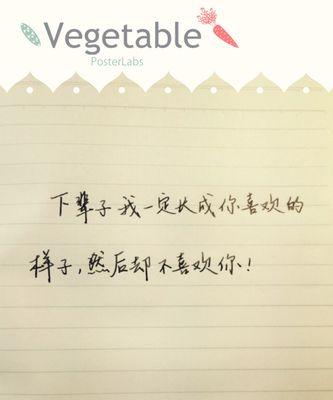 Vegetable
PosterLabs
下辈子我一定长成你喜欢的
样子,然后却不喜欢你!